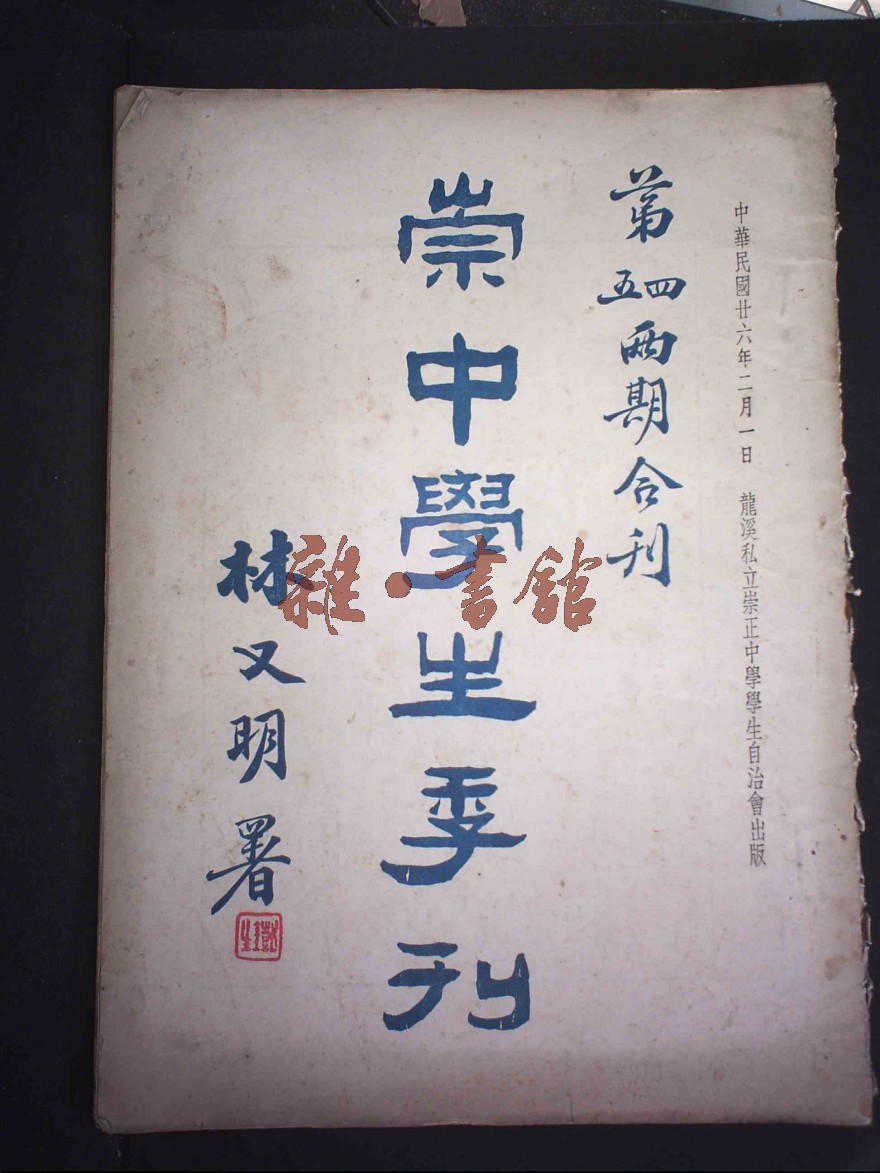 中華民國廿六年二月一日 龍溪私立崇正中學學生自治會出版
第四五兩期合刊
崇中學生季刊
林又明署
雜·書館